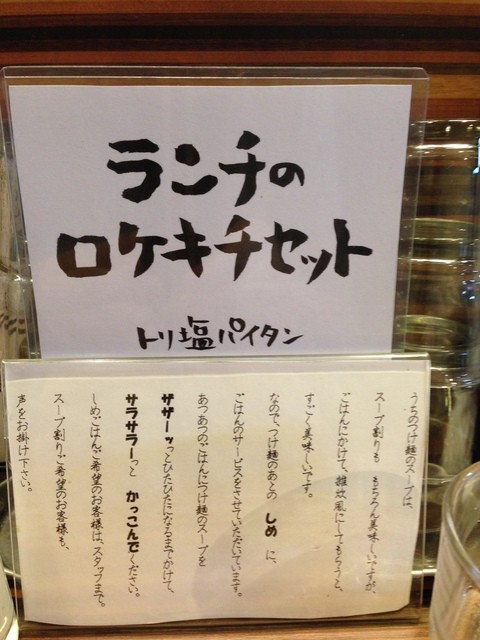 ランチの
ロケキチセット
トリ塩パイタン
うちのつけ麺のスープは、
スープ割りも もちろん美味しいですが、
ごはんにかけて、雑炊風にしてもらうと、
すごく美味しいです。
なので、つけ麺のあとの しめ に、
ごはんのサービスをさせていただいています。
あつあつのごはんにつけ麺のスープを
ザザーッっとひたひたになるまでかけて、
サラサラーっと かっこんでください。
しめごはんご希望のお客様は、スタッフまで。
スープ割りご希望のお客様も、
声をお掛け下さい。